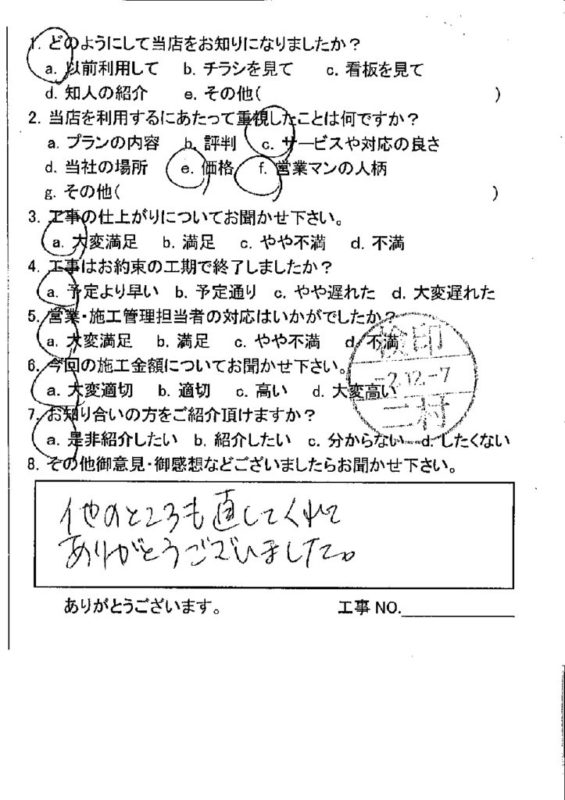 1. どのようにして当店をお知りになりましたか？
a. 以前利用して b. チラシを見て c. 看板を見て
d. 知人の紹介 e. その他( )
2. 当店を利用するにあたって重視したことは何ですか？
a. プランの内容 b. 評判 c. サービスや対応の良さ
d. 当社の場所 e. 価格 f. 営業マンの人柄
g. その他( )
3. 工事の仕上がりについてお聞かせ下さい。
a. 大変満足 b. 満足 c. やや不満 d. 不満
4. 工事はお約束の工期で終了しましたか？
a. 予定より早い b. 予定通り c. やや遅れた d. 大変遅れた
5. 営業・施工管理担当者の対応はいかがでしたか？
a. 大変満足 b. 満足 c. やや不満 d. 不満
6. 今回の施工金額についてお聞かせ下さい。
a. 大変適切 b. 適切 c. 高い d. 大変高い
検印
-2.12.-7
二村
7. お知り合いの方をご紹介頂けますか？
a. 是非紹介したい b. 紹介したい c. 分からない d. したくない
8. その他御意見・御感想などございましたらお聞かせ下さい。
他のところも直してくれて
ありがとうございました。
ありがとうございます。 工事 NO.